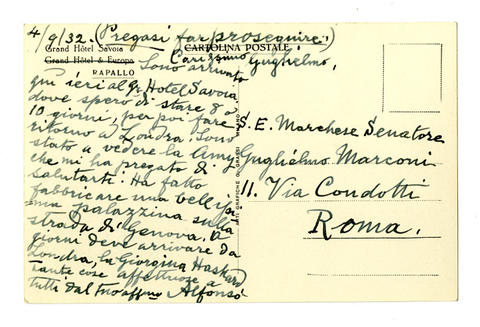 4/9/32. (Pregasi far proseguire)
Grand Hôtel Savoia
Grand Hôtel & Europa
RAPALLO
CARTOLINA POSTALE
Carissimo Guglielmo,
Sono arrivato
qui ieri al Gr. Hotel Savoia
dove spero di stare 8 o
10 giorni, per poi fare
ritorno a Londra. Sono
stato a vedere la Amy
che mi ha pregato di
salutarti. Ha fatto
fabbricare una bellissima
palazzina sulla
strada di Genova. A
giorni deve arrivare da
Londra, la Giorgina
tante cose affettuose a
tutti dal tuo affmo Alfonso
S. E. Marchese Senatore
Guglielmo Marconi
11. Via Condotti
Roma.